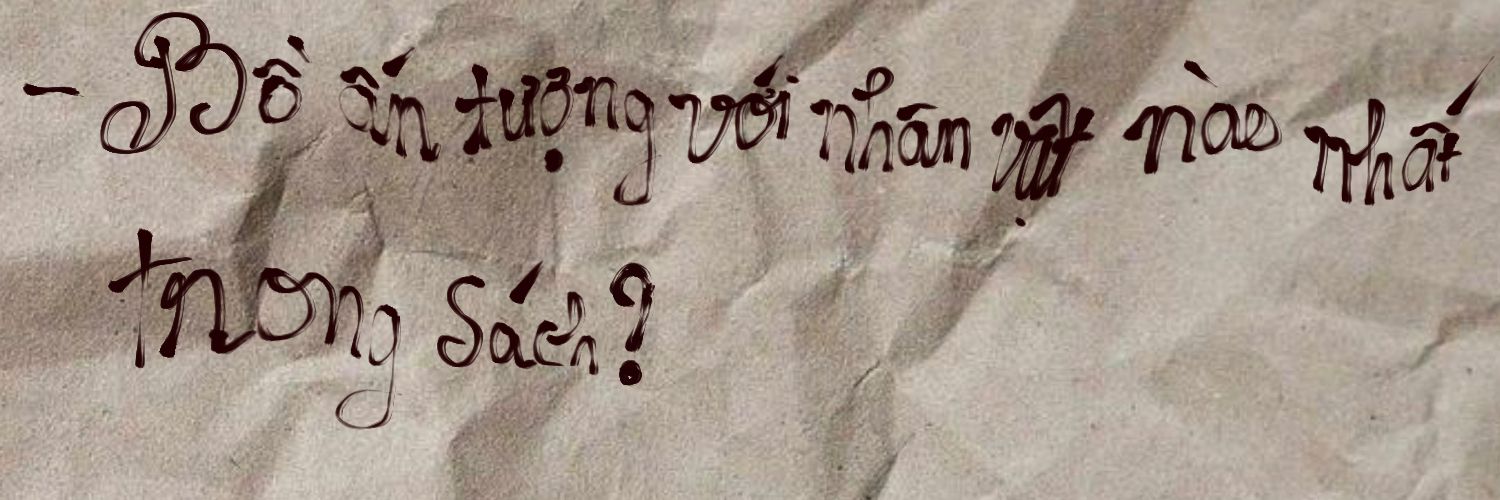 - Bồ ấn tượng với nhân vật nào nhất
trong sách?